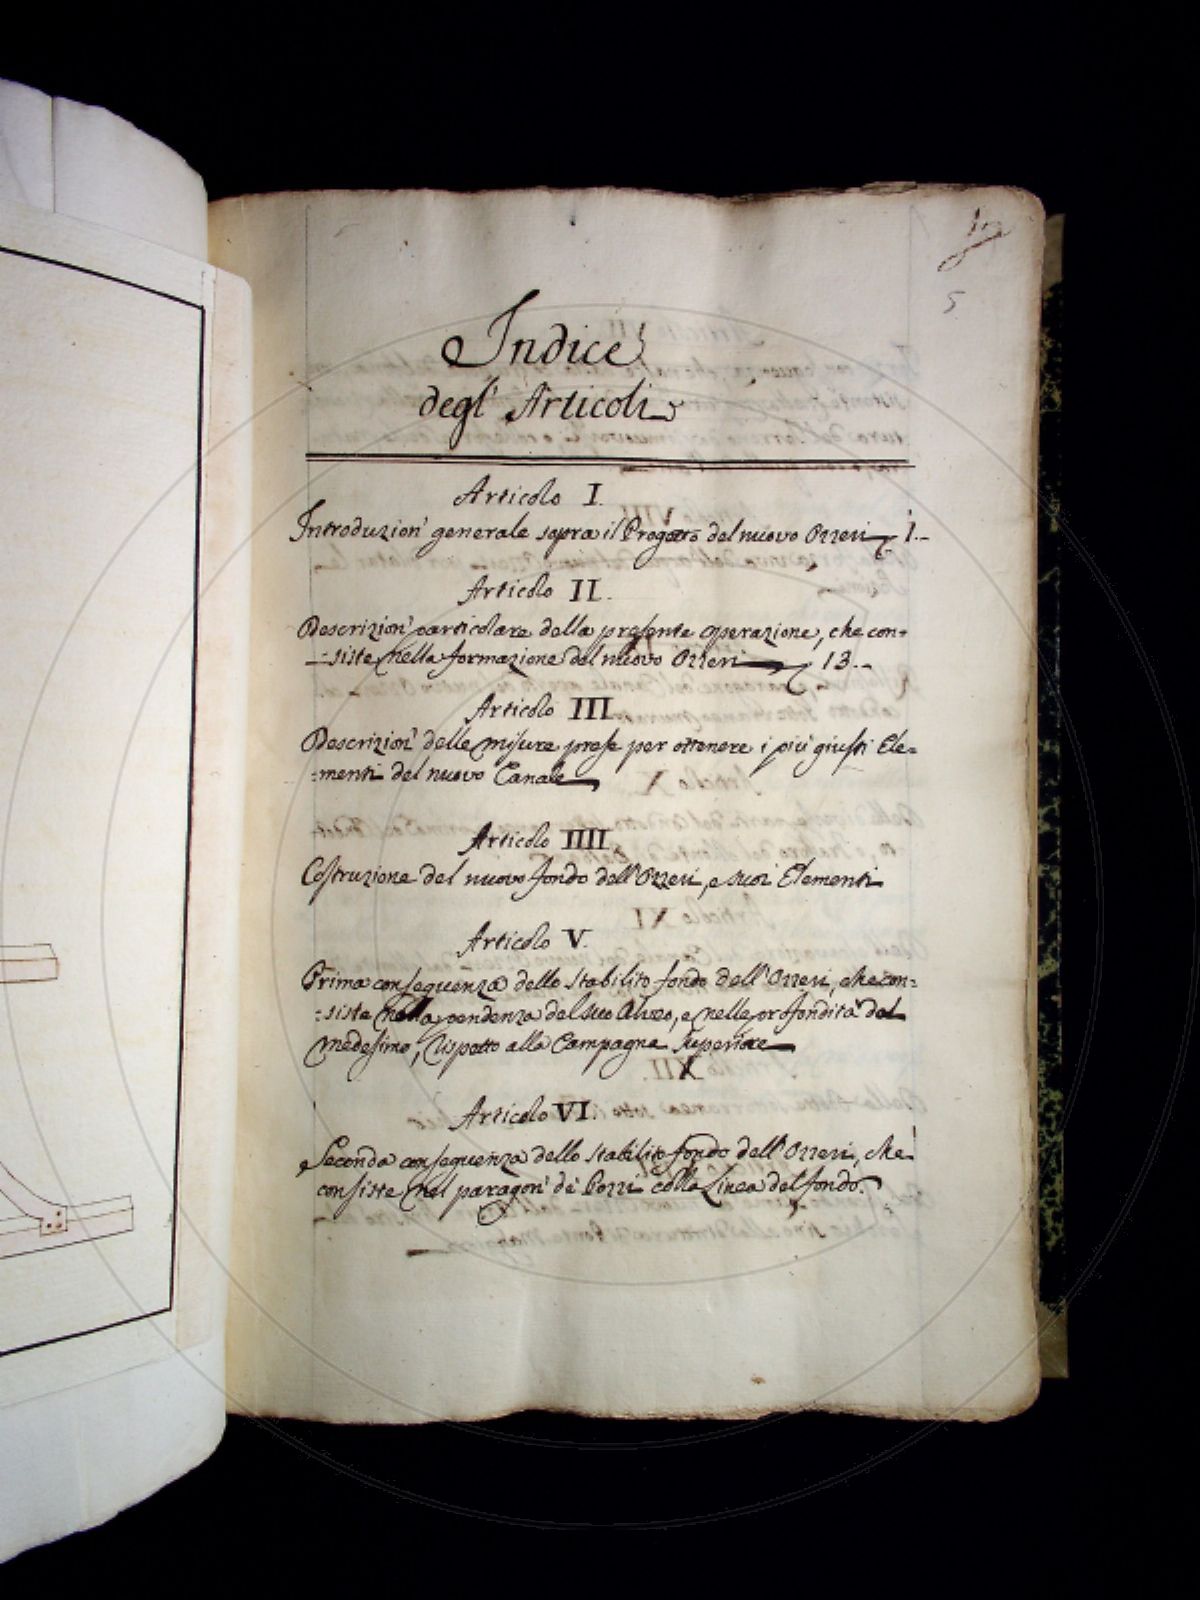 5
Indice
degl' Articoli
Articolo I.
Introduzion' generale sopra il Progetto del nuovo Ozzeri 1.
Articolo II.
Descrizion' particolare della presente operazione, che con-
siste nella formazione del nuovo Ozzeri 13.
Articolo III
Descrizion' delle misure prese per ottenere i più giusti Ele-
menti del nuovo Canale
Articolo IIII
Costruzione del nuovo fondo dell'Ozzeri, e suoi Elementi
Articolo V.
Prima conseguenza dello stabilito fondo dell'Ozzeri, che con-
siste nella pendenza del suo Alveo, e nelle profondità del
medesimo, rispetto alla Campagna superiore
Articolo VI.
Seconda conseguenza dello stabilito fondo dell'Ozzeri, che
consiste nel paragon' de' Pozzi colla Linea del fondo.